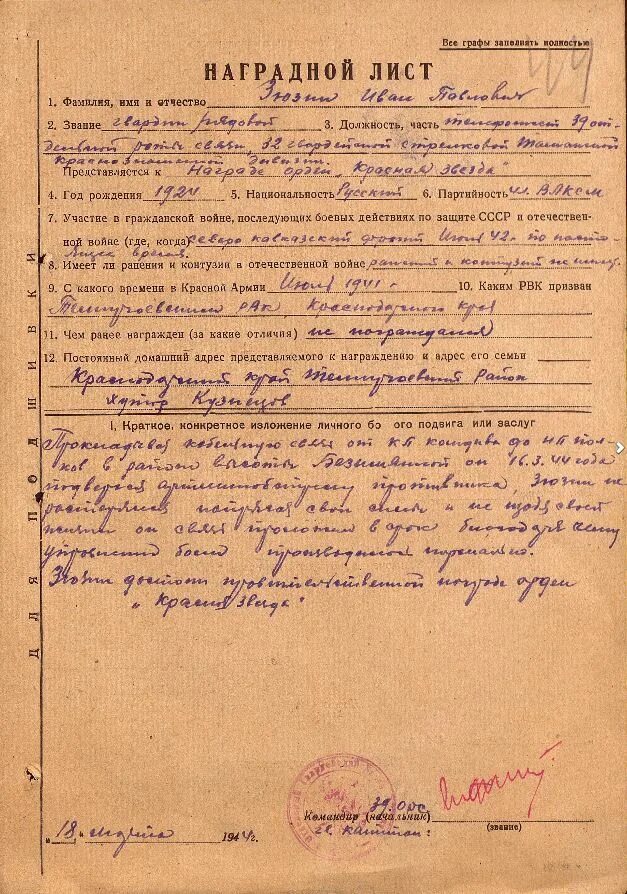 Все графы заполнять полностью
НАГРАДНОЙ ЛИСТ
1. Фамилия, имя и отчество Зюзин Иван Павлович
2. Звание гвардии рядовой 3. Должность, часть телефонист 39 от-
дельной роты связи, 32 гвардейской стрелковой Таманской
Краснознаменной дивизии.
Представляется к Награде орден „Красная Звезда"
4. Год рождения 1924 5. Национальность Русский 6. Партийность чл. ВЛКСМ
7. Участие в гражданской войне, последующих боевых действиях по защите СССР и отечествен-
ной войне (где, когда) Северо Кавказский фронт Июня 42 г. по насто-
ящее время.
8. Имеет ли ранения и контузии в отечественной войне ранений и контузий не имеет
9. С какого времени в Красной Армии Июля 1941 г. 10. Каким РВК призван
Темрюкским РВК, Краснодарского края
11. Чем ранее награжден (за какие отличия) не награждался
12. Постоянный домашний адрес представляемого к награждению и адрес его семьи
Краснодарский край район
Хутор Кузнецов
I, Краткое, конкретное изложение личного бо ого подвига или заслуг
Прокладывая кабельную связь от КП комдива до НП пол-
ков в районе высоты Безымянной он 16.3.44 года
подвергся артминобстрелу противника, Зюзин не
растерялся напрягая свои силы и не щадя своей
жизни он связь проложил в срок благодаря чему
управление боем производилось нормально.
Зюзин достоин правительственной награде орден
„Красная Звезда"
ДЛЯ ПОДШИВКИ
39 орс
Командир (начальник)
гв. капитан:
(звание)
„18" марта 1944 г.